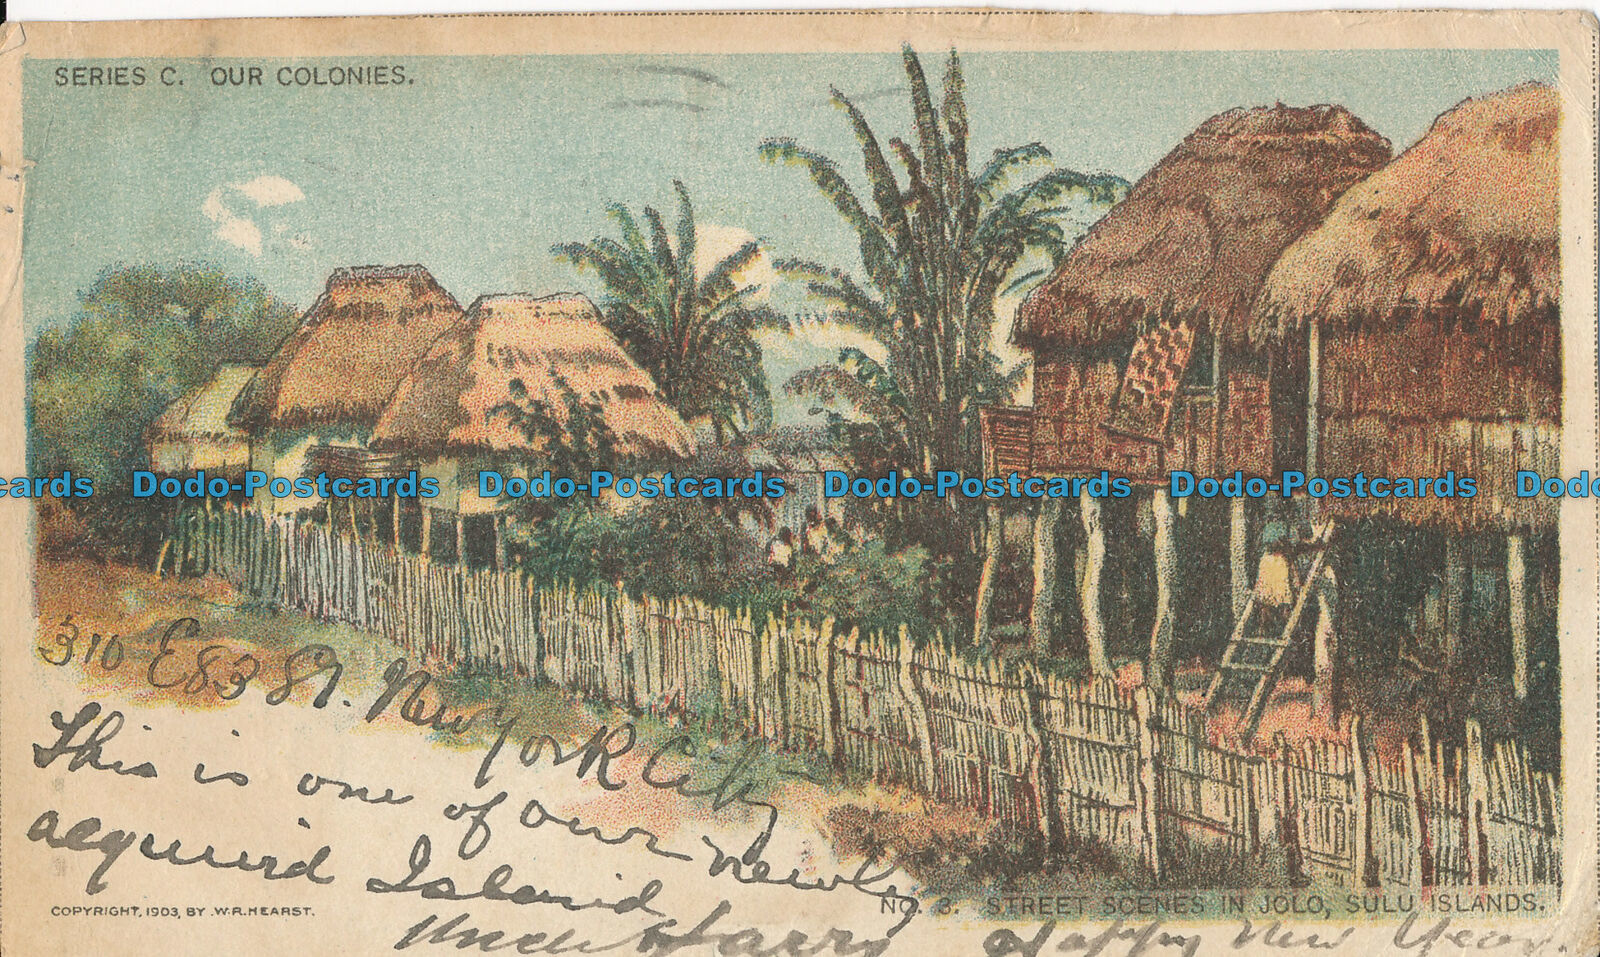 SERIES C. OUR COLONIES.
cards Dodo-Postcards Dodo-Postcards Dodo-Postcards Dodo-Postcards Dodo
310 E 83 St. New York City
This is one of our newly
acquired Island
Uncle Harry Happy New Year.
COPYRIGHT, 1903, BY W.R.HEARST.
NO. 3. STREET SCENES IN JOLO, SULU ISLANDS.